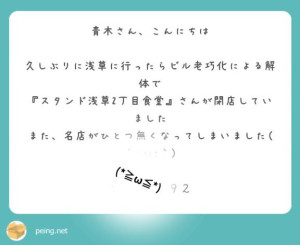 青木さん、こんにちは
久しぶりに浅草に行ったらビル老朽化による解
体で
『スタンド浅草2丁目食堂』さんが閉店してい
ました
また、名店がひとつ無くなってしまいました(
(*≧ω≦*) 92
peing.net